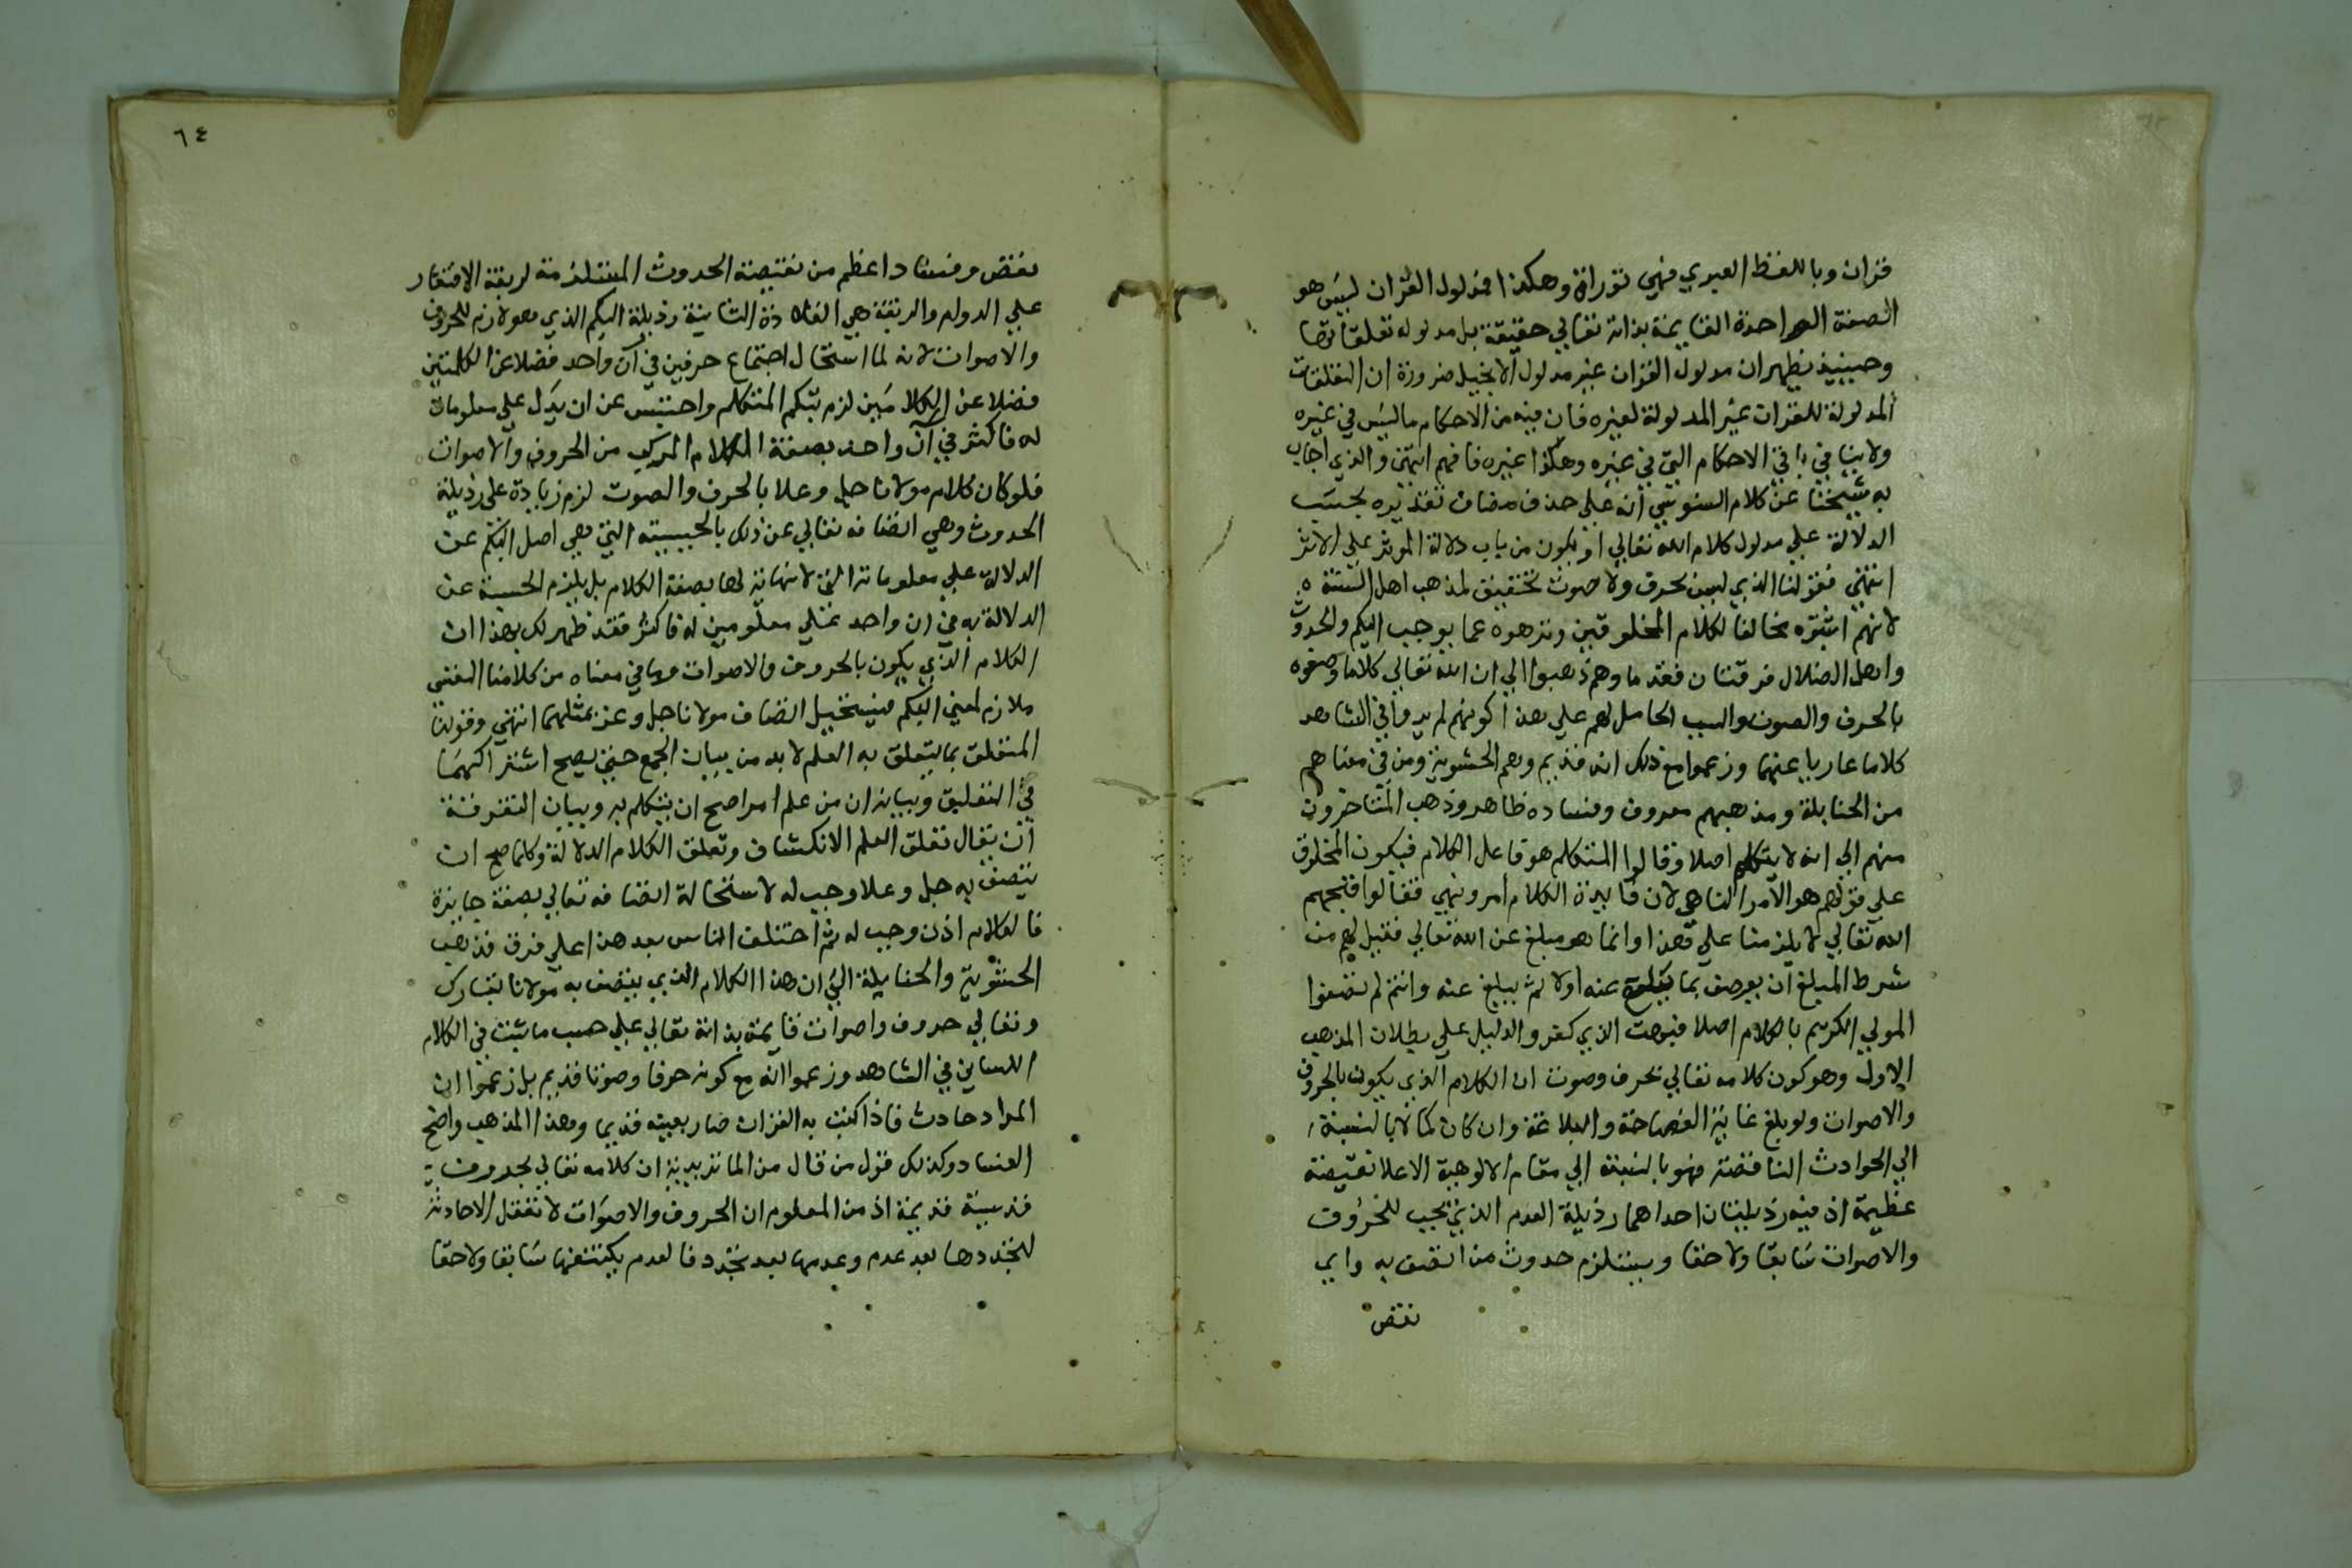 قران وباللفظ العبري فهي توراة وهكذا فمدلول القران ليس هو
الصفة الواحدة القايمة بذاته تعالي حقيقة بل مدلوله تعلقاتها
وحينيذ يظهر ان مدلول القران غير مدلول الانجيل ضرورة ان التعلقات
المدلولة للقران غير المدلولة لغيره فان فيه من الاحكام ما ليس في غيره
ولا ينافي باقي الاحكام التي في غيره وهكذا غيره فافهم انتهي والذي اجاب
به شيخنا عن كلام السنوسي انه علي حذف مضاف تقديره بحسب
الدلالة علي مدلول كلام الله تعالي او يكون من باب دلالة الموثر علي الاثر
انتهي فقولنا الذي ليس بحرف ولا صوت تحقيق لمذهب اهل السنة
لانهم اثبتوه مخالفا لكلام المخلوقين ونزهوه عما يوجب البكم والحدوث
واهل الضلال فرقتان فقدماوهم ذهبوا الي ان الله تعالي كلاما وصفوه
بالحرف والصوت والسبب الحامل لهم علي هذا كونهم لم يدوا في الشاهد
كلاما عاريا عنهما وزعموا مع ذلك انه قديم وهم الحشوية ومن في معناهم
من الحنابلة ومذهبهم معروف وفساده ظاهر وذهب المتاخرون
منهم الي انه لا يتكلم اصلا وقالوا المتكلم هو فاعل الكلام فيكون المخلوق
علي قولهم هو الآمر الناهي لان فايدة الكلام امر ونهي فقالوا قبحهم
الله تعالي لا يلزمنا علي هذا وانما هو مبلغ عن الله تعالي فقيل لهم من
شرط المبلغ ان يوصف بما يبلغه عنه اولا ثم يبلغ عنه وانتم لم تصفوا
المولي الكريم بالكلام اصلا فبهت الذي كفر والدليل علي بطلان المذهب
الاول وهو كون كلامه تعالي بحرف وصوت ان الكلام الذي يكون بالحروف
والاصوات ولو بلغ غاية الفصاحة والبلاغة وان كان كمالا بالنسبة
الي الحوادث الناقصة فهو بالنسبة الي مقام الالوهية الاعلا نقيصة
عظيمة اذ فيه رذيلتان احداهما رذيلة العدم الذي يجب للحروف
والاصوات سابقا ولاحقا ويستلزم حدوث من اتصف به واي
نقص
٦٤
نقص وفساد اعظم من نقيصة الحدوث المستلزمة لربقة الافتقار
علي الدوام والربقة هي القلادة الثانية رذيلة البكم الذي هو لازم للحروف
والاصوات لانه لما استحال اجتماع حرفين في آن واحد فضلا عن الكلمتين
فضلا عن الكلامين لزم تبكم المتكلم واحتبس عن ان يدل علي معلومات
له فاكثر في آن واحد بصفة الكلام المركب من الحروف والاصوات
فلو كان كلام مولانا جل وعلا بالحرف والصوت لزم زيادة علي رذيلة
الحدوث وهي اتصافه تعالي عن ذلك بالحبسية التي هي اصل البكم عن
الدلالة علي معلوماته التي لا نهاية لها بصفة الكلام بل يلزم الحبسة عن
الدلالة به في ان واحد علي معلومين له فاكثر فقد ظهر لك بهذا ان
الكلام الذي يكون بالحروف والاصوات وما في معناه من كلامنا النفسي
ملازم لمعني البكم فيستحيل اتصاف مولانا جل وعز بمثلهما انتهي وقولنا
المتعلق بما يتعلق به العلم لا بد من بيان الجمع حتي يصح اشتراكهما
في التعليق وبيانه ان من علم امرا صح ان يتكلم به وبيان التفرقة
ان يقال تعلق العلم الانكشاف وتعلق الكلام الدلالة وكلما صح ان
يتصف به جل وعلا وجب له لاستحالة اتصافه تعالي بصفة جايزة
فالكلام اذن وجب له ثم اختلف الناس بعد هذا علي فرق فذهب
الحشوية والحنابلة الي ان هذا الكلام الذي يتصف به مولانا تبارك
وتعالي حروف واصوات قايمة بذاته تعالي علي حسب ما ثبت في الكلام
اللساني في الشاهد وزعموا انه مع كونه حرفا وصوتا قديم بل زعموا ان
المداد حادث فاذا كتب به القران صار بعينه قديما وهذا المذهب واضح
الفساد وكذلك قول من قال من الماتريدية ان كلامه تعالي بحروف
قدسية قديمة اذ من المعلوم ان الحروف والاصوات لا تعقل الا حادثة
لتجددها بعد عدم وعدمها بعد تجدد فالعدم يكتنفها سابقا ولاحقا